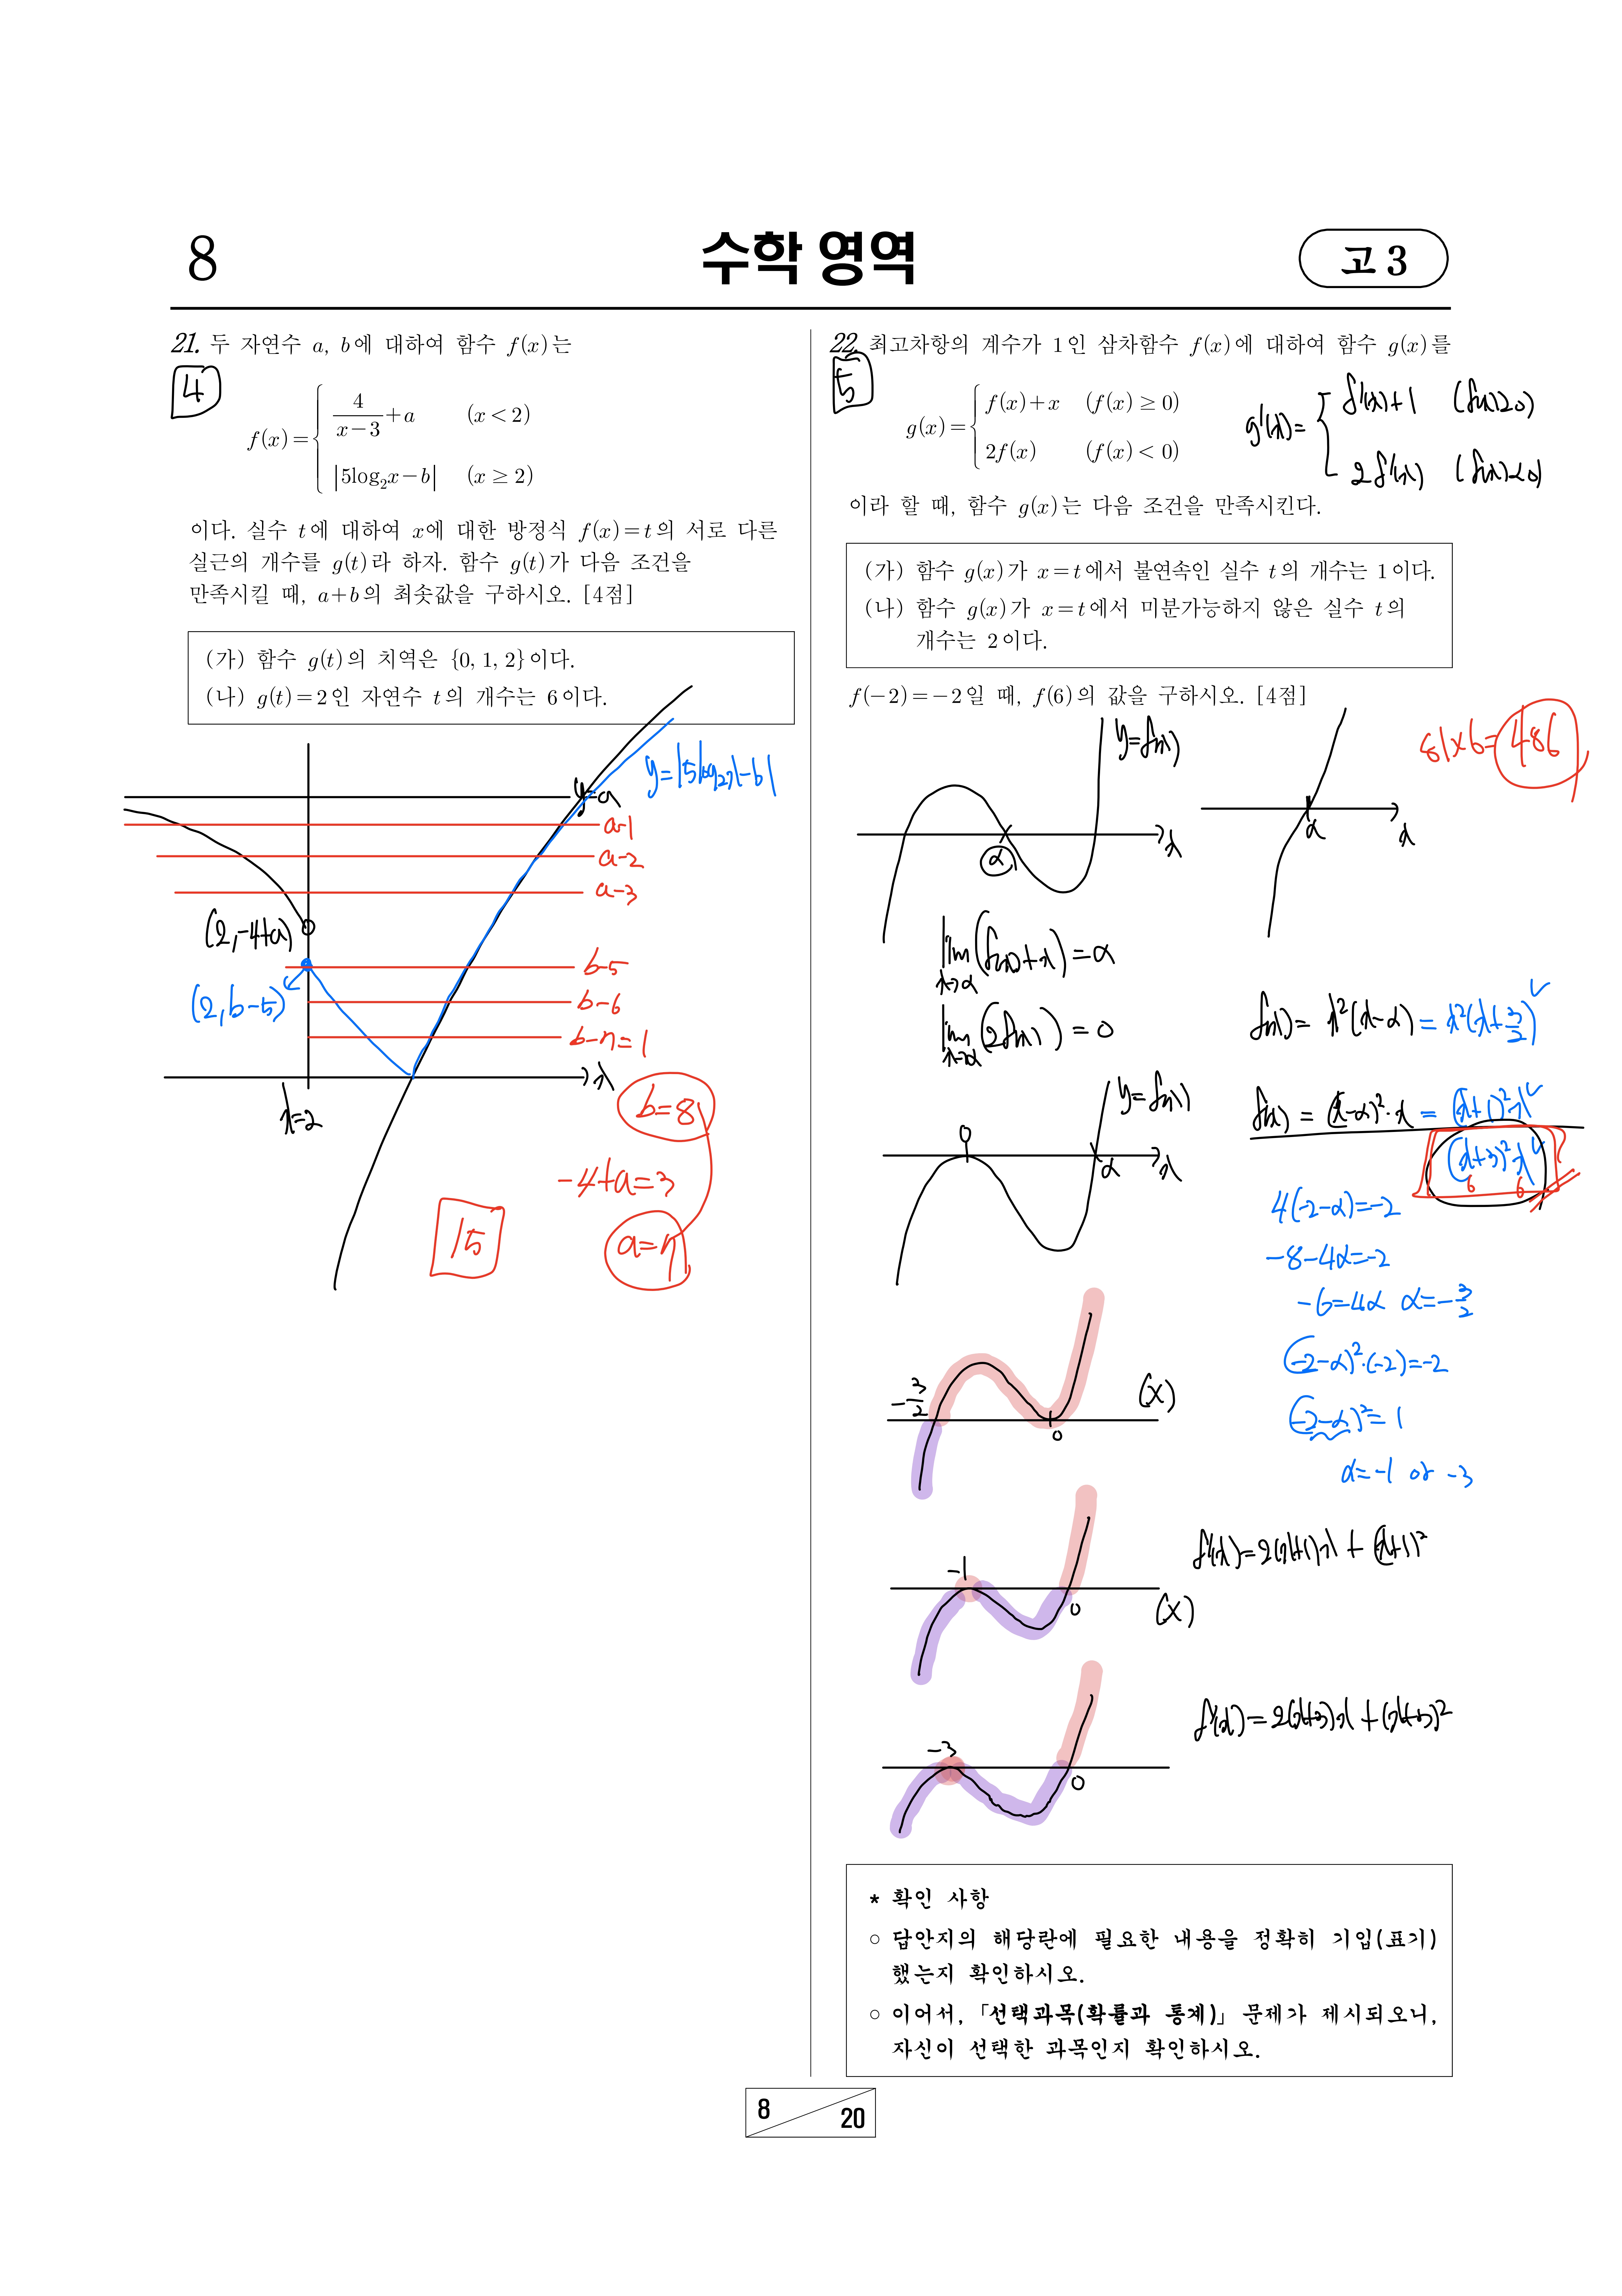 8
수학 영역
고 3
21. 두 자연수 a, b에 대하여 함수 f(x)는
4
f(x)= { 4/(x−3)+a (x<2)
|5log₂x−b| (x≥2)
이다. 실수 t에 대하여 x에 대한 방정식 f(x)=t의 서로 다른
실근의 개수를 g(t)라 하자. 함수 g(t)가 다음 조건을
만족시킬 때, a+b의 최솟값을 구하시오. [4점]
(가) 함수 g(t)의 치역은 {0, 1, 2}이다.
(나) g(t)=2인 자연수 t의 개수는 6이다.
y=|5log₂x−b|
y=a
a-1
a-2
a-3
(2,-4+a)
b-5
(2,b-5)
b-6
b-7=1
x
x=2
b=8
-4+a=3
a=7
15
22. 최고차항의 계수가 1인 삼차함수 f(x)에 대하여 함수 g(x)를
5
g(x)= { f(x)+x (f(x)≥0)
2f(x) (f(x)<0)
g'(x)= { f'(x)+1 (f(x)>0)
2f'(x) (f(x)<0)
이라 할 때, 함수 g(x)는 다음 조건을 만족시킨다.
(가) 함수 g(x)가 x=t에서 불연속인 실수 t의 개수는 1이다.
(나) 함수 g(x)가 x=t에서 미분가능하지 않은 실수 t의
개수는 2이다.
f(−2)=−2일 때, f(6)의 값을 구하시오. [4점]
81×6=486
y=f(x)
x
α
α
x
lim x→α (f(x)+x)=α
lim x→α (2f(x))=0
f(x)= x²(x-α) = x²(x+3/2)
y=f(x)
f(x) = (x-α)²·x = (x+1)²x
(x+3)²x
6 6
0
α
x
4(-2-α)=-2
-8-4α=-2
-6=4α α=-3/2
(-2-α)²·(-2)=-2
(-2-α)²=1
α=-1 or -3
-3/2
0
(X)
-1
0
(X)
f'(x)=2(x+1)x+(x+1)²
-3
0
f'(x)=2(x+3)x+(x+3)²
* 확인 사항
○ 답안지의 해당란에 필요한 내용을 정확히 기입(표기)
했는지 확인하시오.
○ 이어서, 「선택과목(확률과 통계)」 문제가 제시되오니,
자신이 선택한 과목인지 확인하시오.
8
20